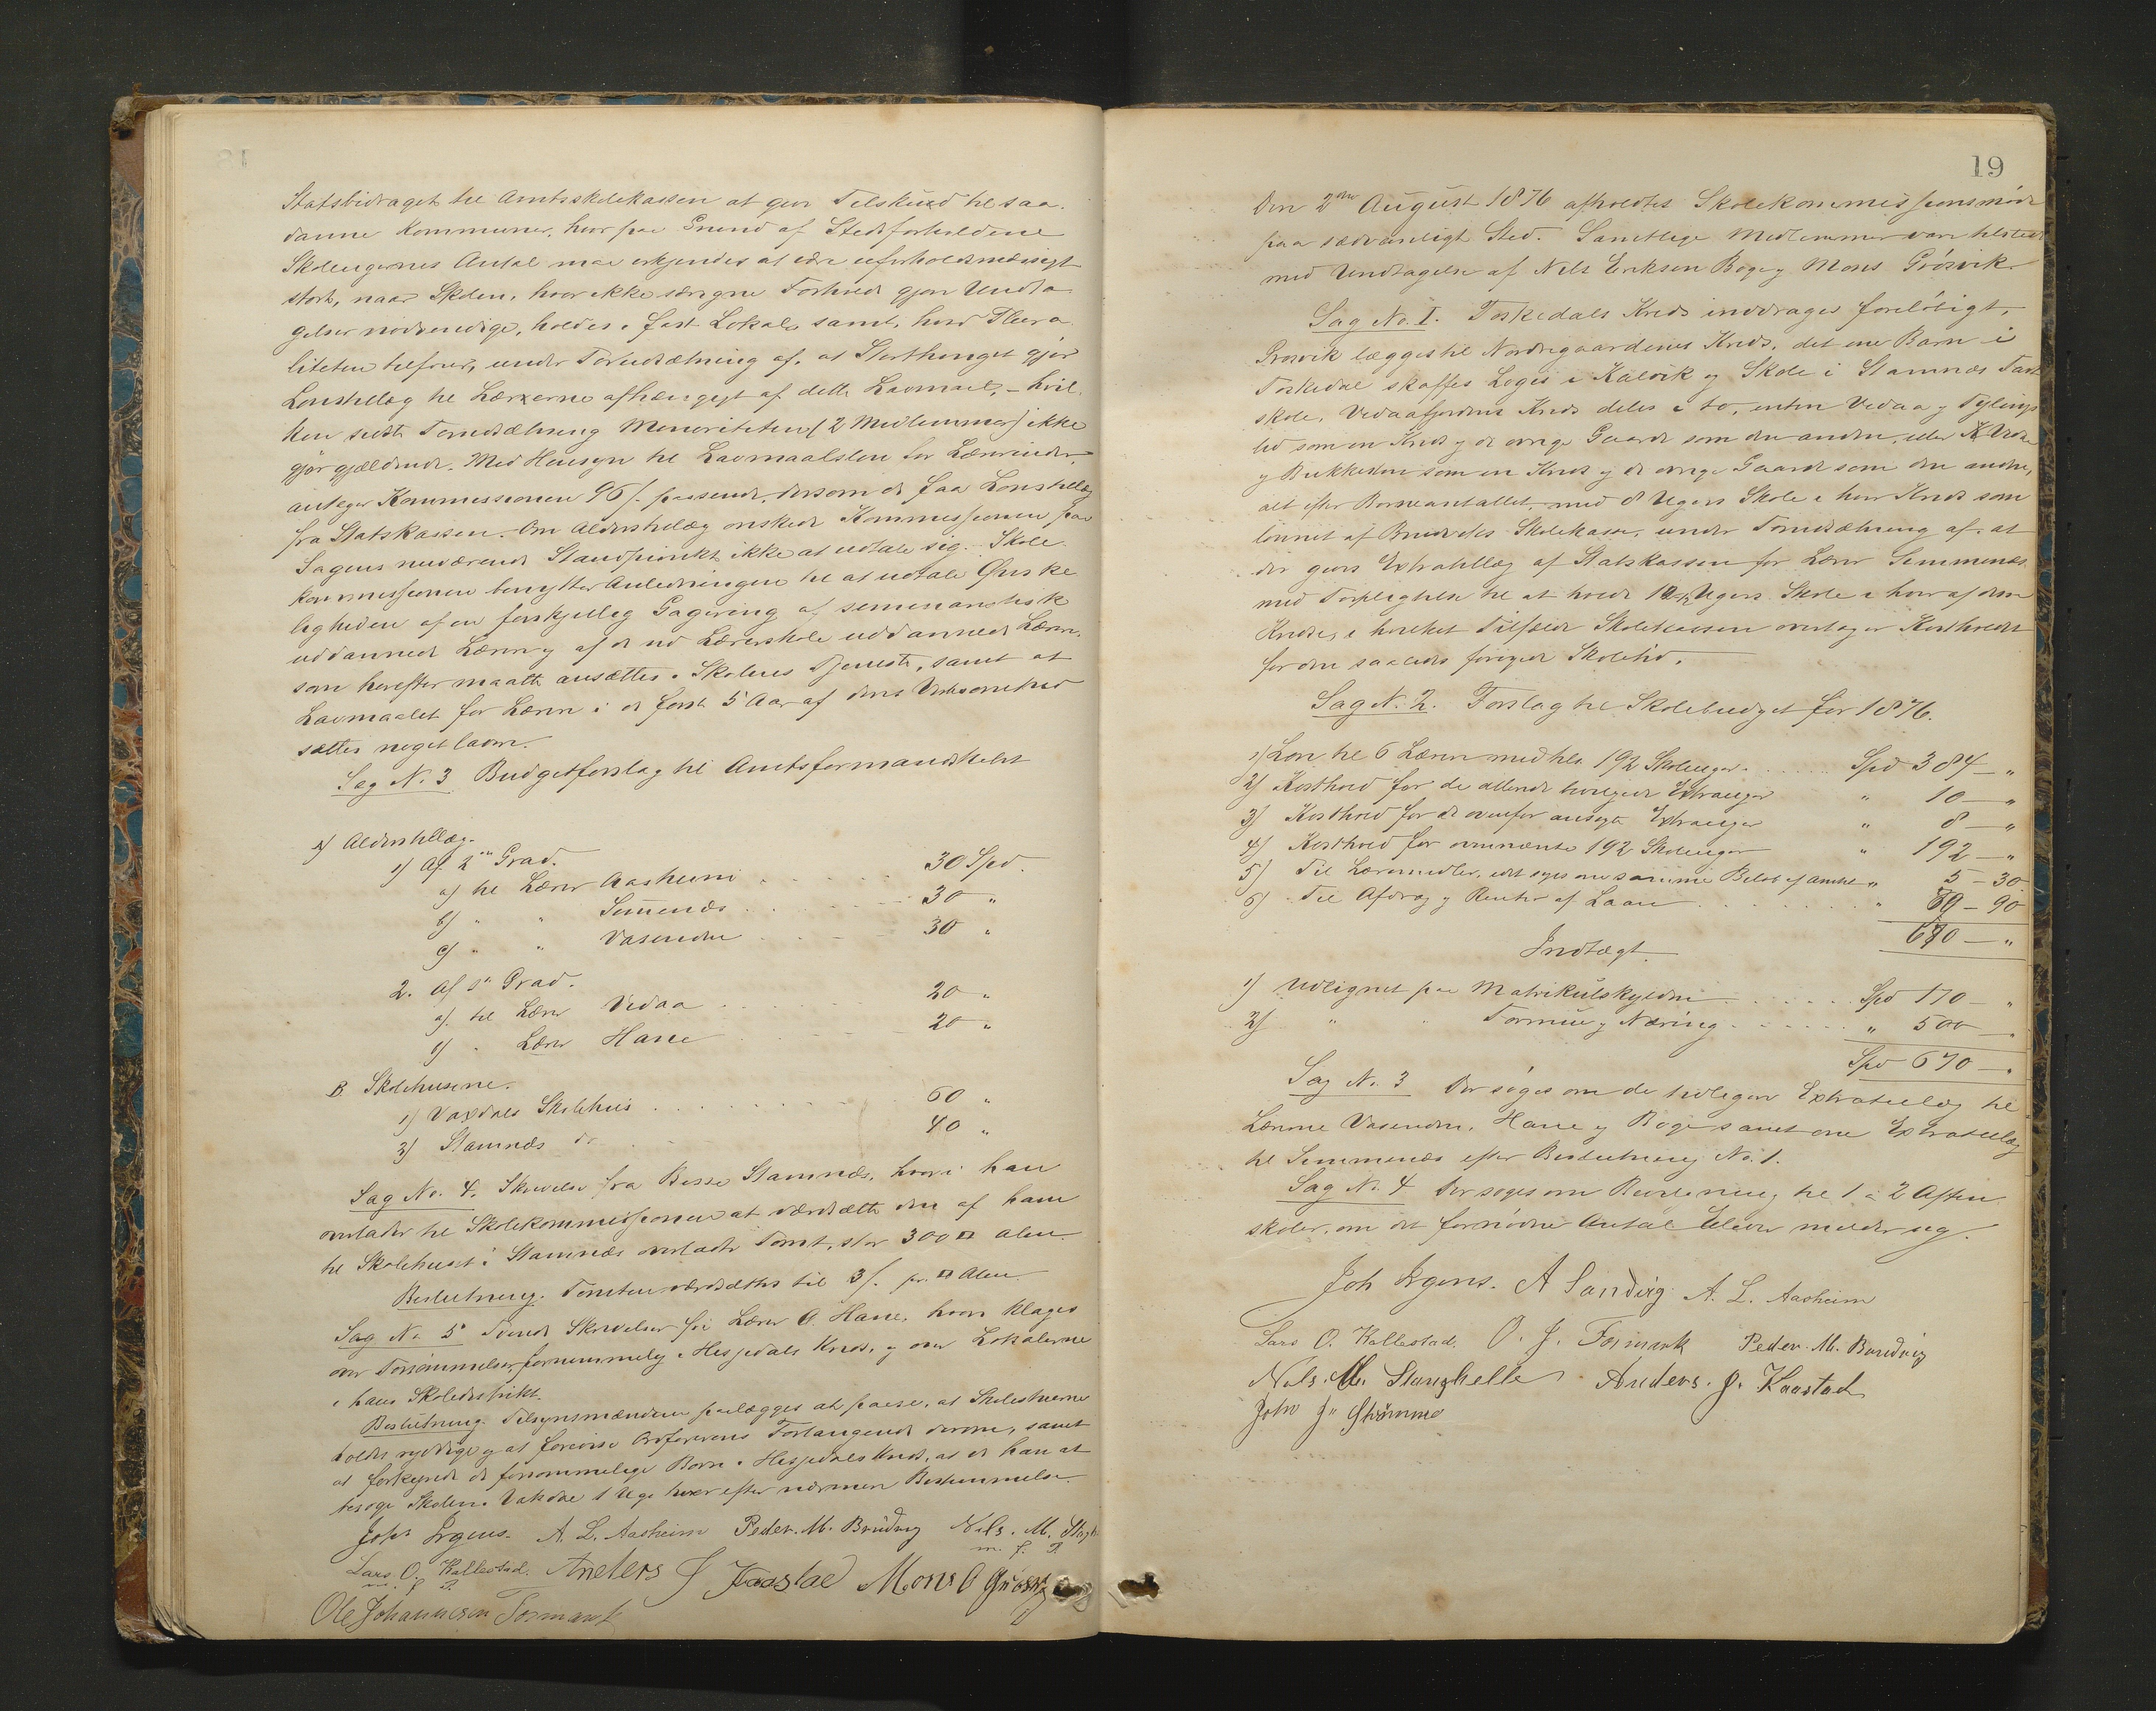 Statsbidraget til Amtsskolekassen at give Tilskud til saa-
danne Kommuner, hvor paa Grund af Stedsforholdene
Skoleugernes Antal maa erkjendes at være uforholdsmæssigt
stort, naar Skolen, hvor ikke særegne Forhold gjør Undta-
gelser nødvendige, holdes i fast Lokale samt, hvad Plura-
liteten tilføier, under Forudsætning af, at Storthinget gjør
Lønstillæg til Lærerne afhængigt af dette Lavmaal, – hvil-
ken sidste Forudsætning Minoriteten (2 Medlemmer) ikke
gjør gjældende. Med Hensyn til Lavmaalsløn for Lærerinder,
antager Kommissionen 96 s. passende, dersom de faa Lønstillæg
fra Statskassen. Om Alderstillæg ønskede Kommissionen paa
Sagens nuværende Standpunkt ikke at udtale sig. Skole-
kommissionen benytter Anledningen til at udtale Ønske-
ligheden af en forskjellig Gagering af seminaristisk
uddannede Lærere og af de ved Lærerskole uddannede Lærere,
som herefter maatte ansættes i Skolens Tjeneste, samt at
Lavmaalet for Lærere i de først 5 Aar af deres Virksomhed
sættes noget lavere.
Sag No. 3 Budgetforslag til Amtsformandskabet
A) Alderstillæg.
1) Af 2den Grad.
a) til Lærer Aasheim 30 Spd.
b) " " Simmenæs 30 "
c) " " Vasenden 30 "
2. Af 1ste Grad.
a). til Lærer Vedaa 20 "
b) " Lærer Hane 20 "
B Skolehusene.
1) Vaxdals Skolehus 60 "
2) Stamnæs do 40 "
Sag No. 4. Skrivelse fra Basse Stamnæs, hvori han
overlader til Skolekommissionen at værdsætte den af ham
til Skolehuset i Stamnæs overladte Tomt, stor 300 □ Alen
Beslutning. Tomten værdsættes til 3 s. pr. □ Alen.
Sag No. 5 Tvende Skrivelser fra Lærer O. Hane, hvori klages
over Forsømmelser, fornemmelig i Hesjedals Kreds, og over Lokalerne
i hans Skoledistrikt.
Beslutning. Tilsynsmændene paalægges at paase, at Skolestuerne
holdes ryddige og at forevise Ordførerens Forlangende derom, samt
at forkynde de forsømmelige Børn i Hesjedals Kreds, at de har at
besøge Skolen i Vaksdal 1 Uge hver efter nærmere Bestemmelse.
Joh. Irgens. A. L. Aasheim Peder. M. Bruvig Nils. M. Stagh
m. f. P.
Lars O. Kallestad. Anders J Kaastad Mons O Grøsvig
m. f. P.
Ole Johannesen Formark
19
Den 2den August 1876 afholdtes Skolekommissionsmøde
paa sædvanligt Sted. Samtlige Medlemmer vare tilstede
med Undtagelse af Nils Eriksen Boge og Mons Grøsvik.
Sag No. I. Toskedals Kreds inddrages foreløbigt,
Grøsvik lægges til Nordregaardenes Kreds, det ene Barn i
Toskedal skaffes Logis i Kalvik og Skole i Stamnæs Fast-
skole. Vedaafjordens Kreds deles i to, enten Vedaa og Fylings-
lid som en Kreds og de øvrige Gaarde som den anden, eller Vedaa
og Brekkeden som en Kreds og de øvrige Gaarde som den anden,
alt efter Børneantallet, med 8 Ugers Skole i hver Kreds som
lønnet af Bruviks Skolekasse, under Forudsætning af, at
der gives Extratillæg af Statskassen for Lærer Simmenæs
med Forpligtelse til at holde Ugers Skole i hver af disse
Kredse, i hvilket Tilfælde Skolekassen overtager Kostholdet
for den saaledes forøgede Skoletid.
Sag N. 2. Forslag til Skolebudget for 1876.
1) Løn til 6 Lærere med tils. 192 Skoleuger Spd 384 – "
2) Kosthold for de allerede bevilgede Extrauger " 10 – "
3) Kosthold for de ovenfor ansøgte Extrauger " 8 – "
4) Kosthold for ovennævnte 192 Skoleuger " 192 – "
5) Til Læremidler, idet søges om samme Beløb af Amtet " 5 – 30
6) Til Afdrag og Renter af Laan " 69 – 90
670 – "
Indtægt.
1) Udlignet paa Matrikulskylden Spd 170 – "
2) " " Formue og Næring " 500 – "
Spd 670 – "
Sag No. 3 Der søges om de tidligere Extratillæg til
Lærerne Vasenden, Hane og Boge samt om Extratillæg
til Simmenæs efter Beslutning No. 1.
Sag No. 4 Der søges om Bevilgning til 1 à 2 Aften-
skoler, om det fornødne Antal Elever melder sig.
Joh Irgens. A Sandvig A. L. Aasheim
Lars O. Kallestad. O. J. Formark Peder. M. Bruvig
Nils. M. Stanghelle Anders. J. Kaastad
John J. Straume